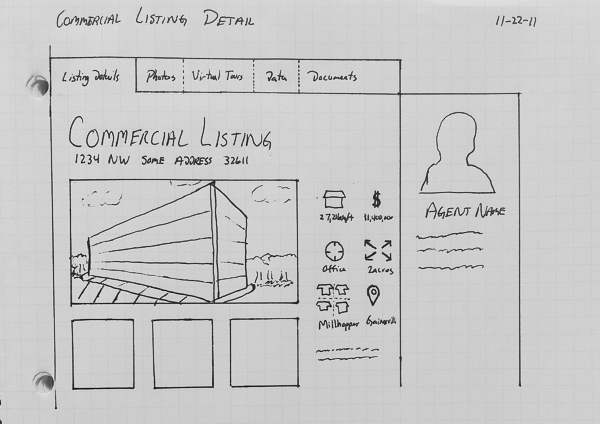 COMMERCIAL LISTING DETAIL
11-22-11
Listing Details Photos Virtual Tours Data Documents
COMMERCIAL LISTING
1234 NW SOME ADDRESS 32611
AGENT NAME
$
Office 2 acres
Millhopper